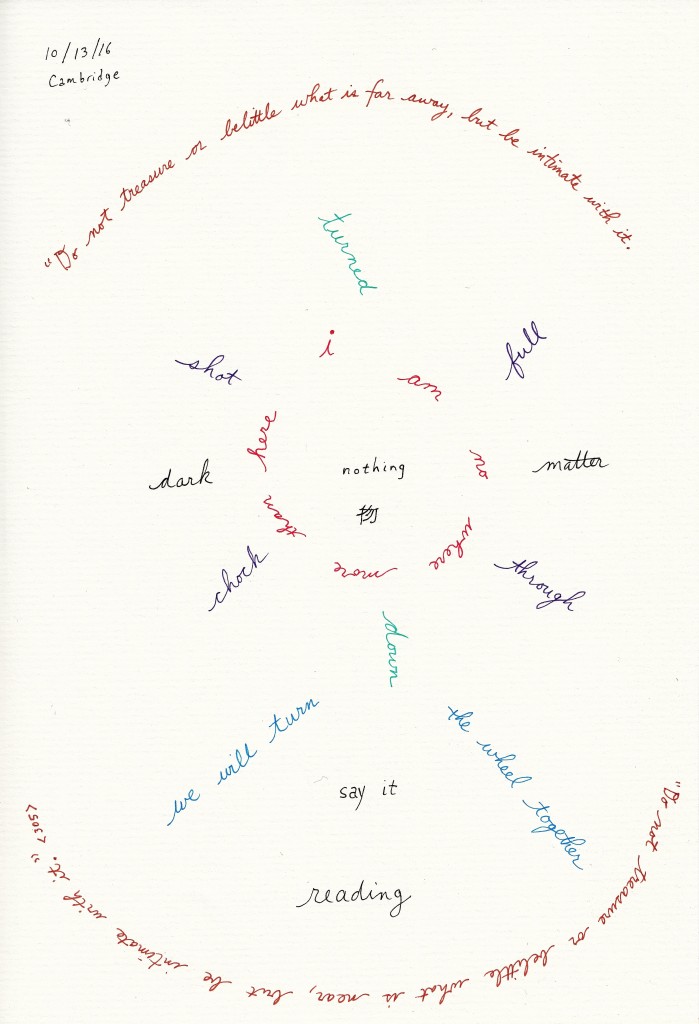 10/13/16
Cambridge
"Do not treasure or belittle what is far away, but be intimate with it.
turned
i am no where more than here
shot
full
dark
matter
nothing
物
chock
through
down
we will turn
the wheel together
say it
reading
"Do not treasure or belittle what is near, but be intimate with it." <305>